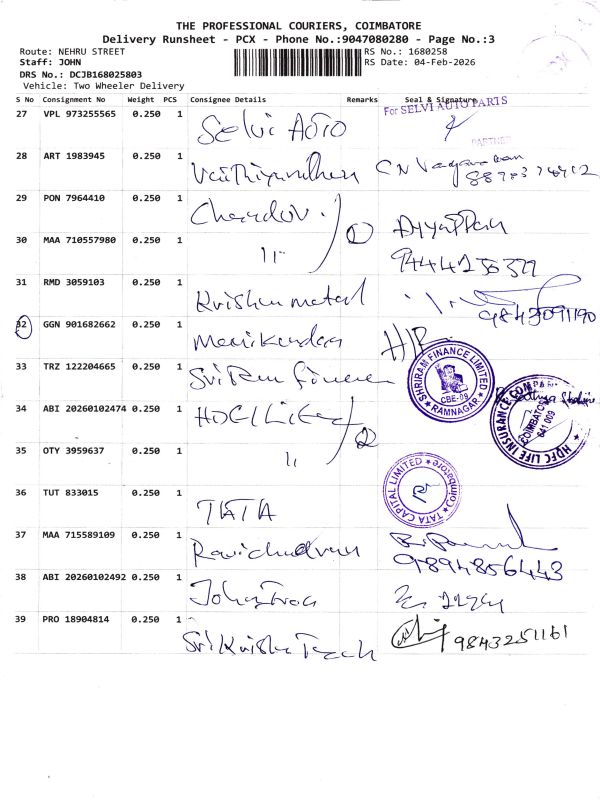 THE PROFESSIONAL COURIERS, COIMBATORE
Delivery Runsheet - PCX - Phone No.:9047080280 - Page No.:3
Route: NEHRU STREET RS No.: 1680258
Staff: JOHN RS Date: 04-Feb-2026
DRS No.: DCJB168025803
Vehicle: Two Wheeler Delivery
S No Consignment No Weight PCS Consignee Details Remarks Seal & Signature
For SELVI AUTO PARTS
27 VPL 973255565 0.250 1 Selvi Auto
PARTNER
28 ART 1983945 0.250 1
29 PON 7964410 0.250 1
30 MAA 710557980 0.250 1 11 Ayyappan
31 RMD 3059103 0.250 1 Krishna metal 9843091190
32 GGN 901682662 0.250 1 Manikandan H/R
33 TRZ 122204665 0.250 1 Sri Ram finance
SHRIRAM FINANCE LIMITED
CBE-09
RAMNAGAR
34 ABI 20260102474 0.250 1 HDFC Life 2
HDFC LIFE INSURANCE COMPANY
COIMBATORE
641 009
35 OTY 3959637 0.250 1 11
TATA CAPITAL LIMITED
Coimbatore
36 TUT 833015 0.250 1 TATA
37 MAA 715589109 0.250 1 Ravichandran
9894856443
38 ABI 20260102492 0.250 1
39 PRO 18904814 0.250 1 Sri Krishna Tech 9843251161